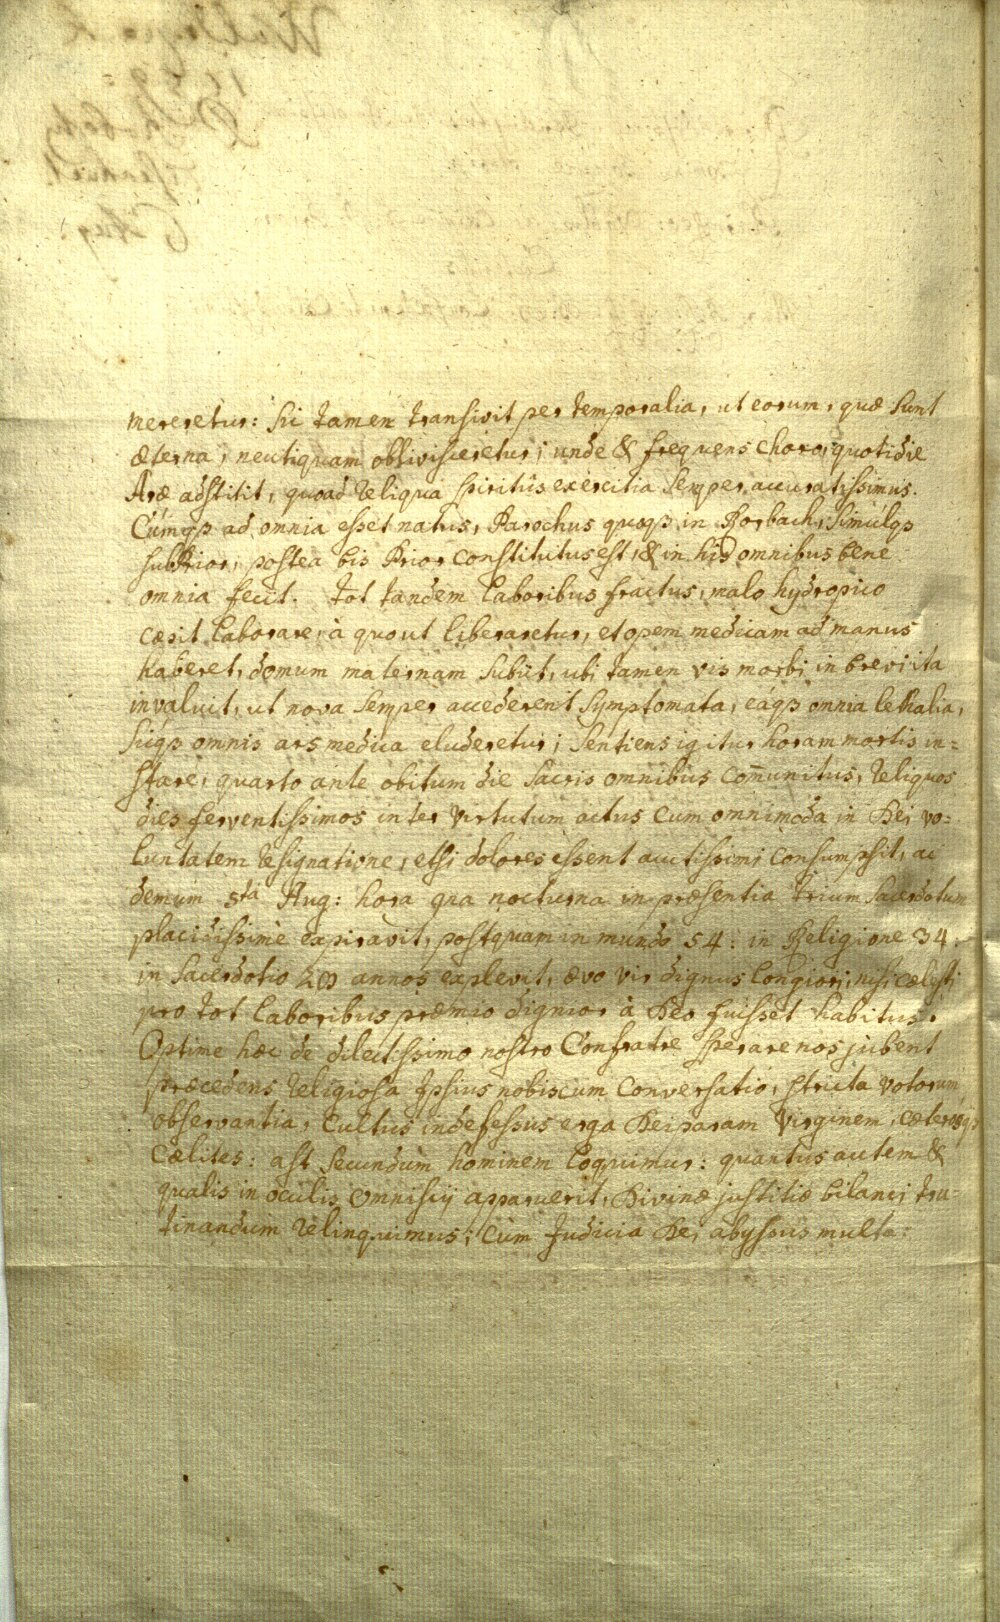 mereretur: sic tamen transivit per temporalia, ut eorum, quæ sunt
æterna, neutiquam oblivisceretur; unde & frequens choro, quotidie
Aræ adstitit, quoad reliqua spiritûs exercitia semper accuratissimus.
Cúmqȝ ad omnia esset natus, Parochus quoqȝ in Rorbach, simúlqȝ
subPrior, postea bis Prior constitutus est, & in his omnibus bene
omnia fecit. Tot tandem laboribus fractus, malo hydropico
cæpit laborare, à quo ut liberaretur, et opem medicam ad manus
haberet, domum maternam subiit, ubi tamen vis morbi in brevi ita
invaluit, ut nova semper accederent symptomata, eáqȝ omnia lethalia,
sicqȝ omnis ars medica eluderetur; sentiens igitur horam mortis in=
stare, quarto ante obitum die sacris omnibus com̄unitus, reliquos
dies ferventissimos inter virtutum actus cum omnimoda in Dei vo=
luntatem resignatione, etsi dolores essent acutissimi consumpsit, ac
demum 5ta Aug: hora 9na nocturna in præsentia trium sacerdotum
placidissimè expiravit, postquam in mundo 54: in Religione 34:
in sacerdotio annos explevit, ævo vir dignus longiori, nisi cælesti
pro tot laboribus præmio dignior à Deo fuisset habitus.
Optime hæc de dilectissimo nostro Confratre sperare nos jubent
præcedens religiosa Ipsius nobiscum conversatio, stricta votorum
observantia, cultus indefessus erga Deiparam Virginem, cæterosqȝ
Cælites: ast secundùm hominem loquimur: quantus autem &
qualis in oculis Omniscij apparuerit, Divinæ justitiæ bilanci tru=
tinandum relinquimus; cùm Judicia Dei abyssus multa.